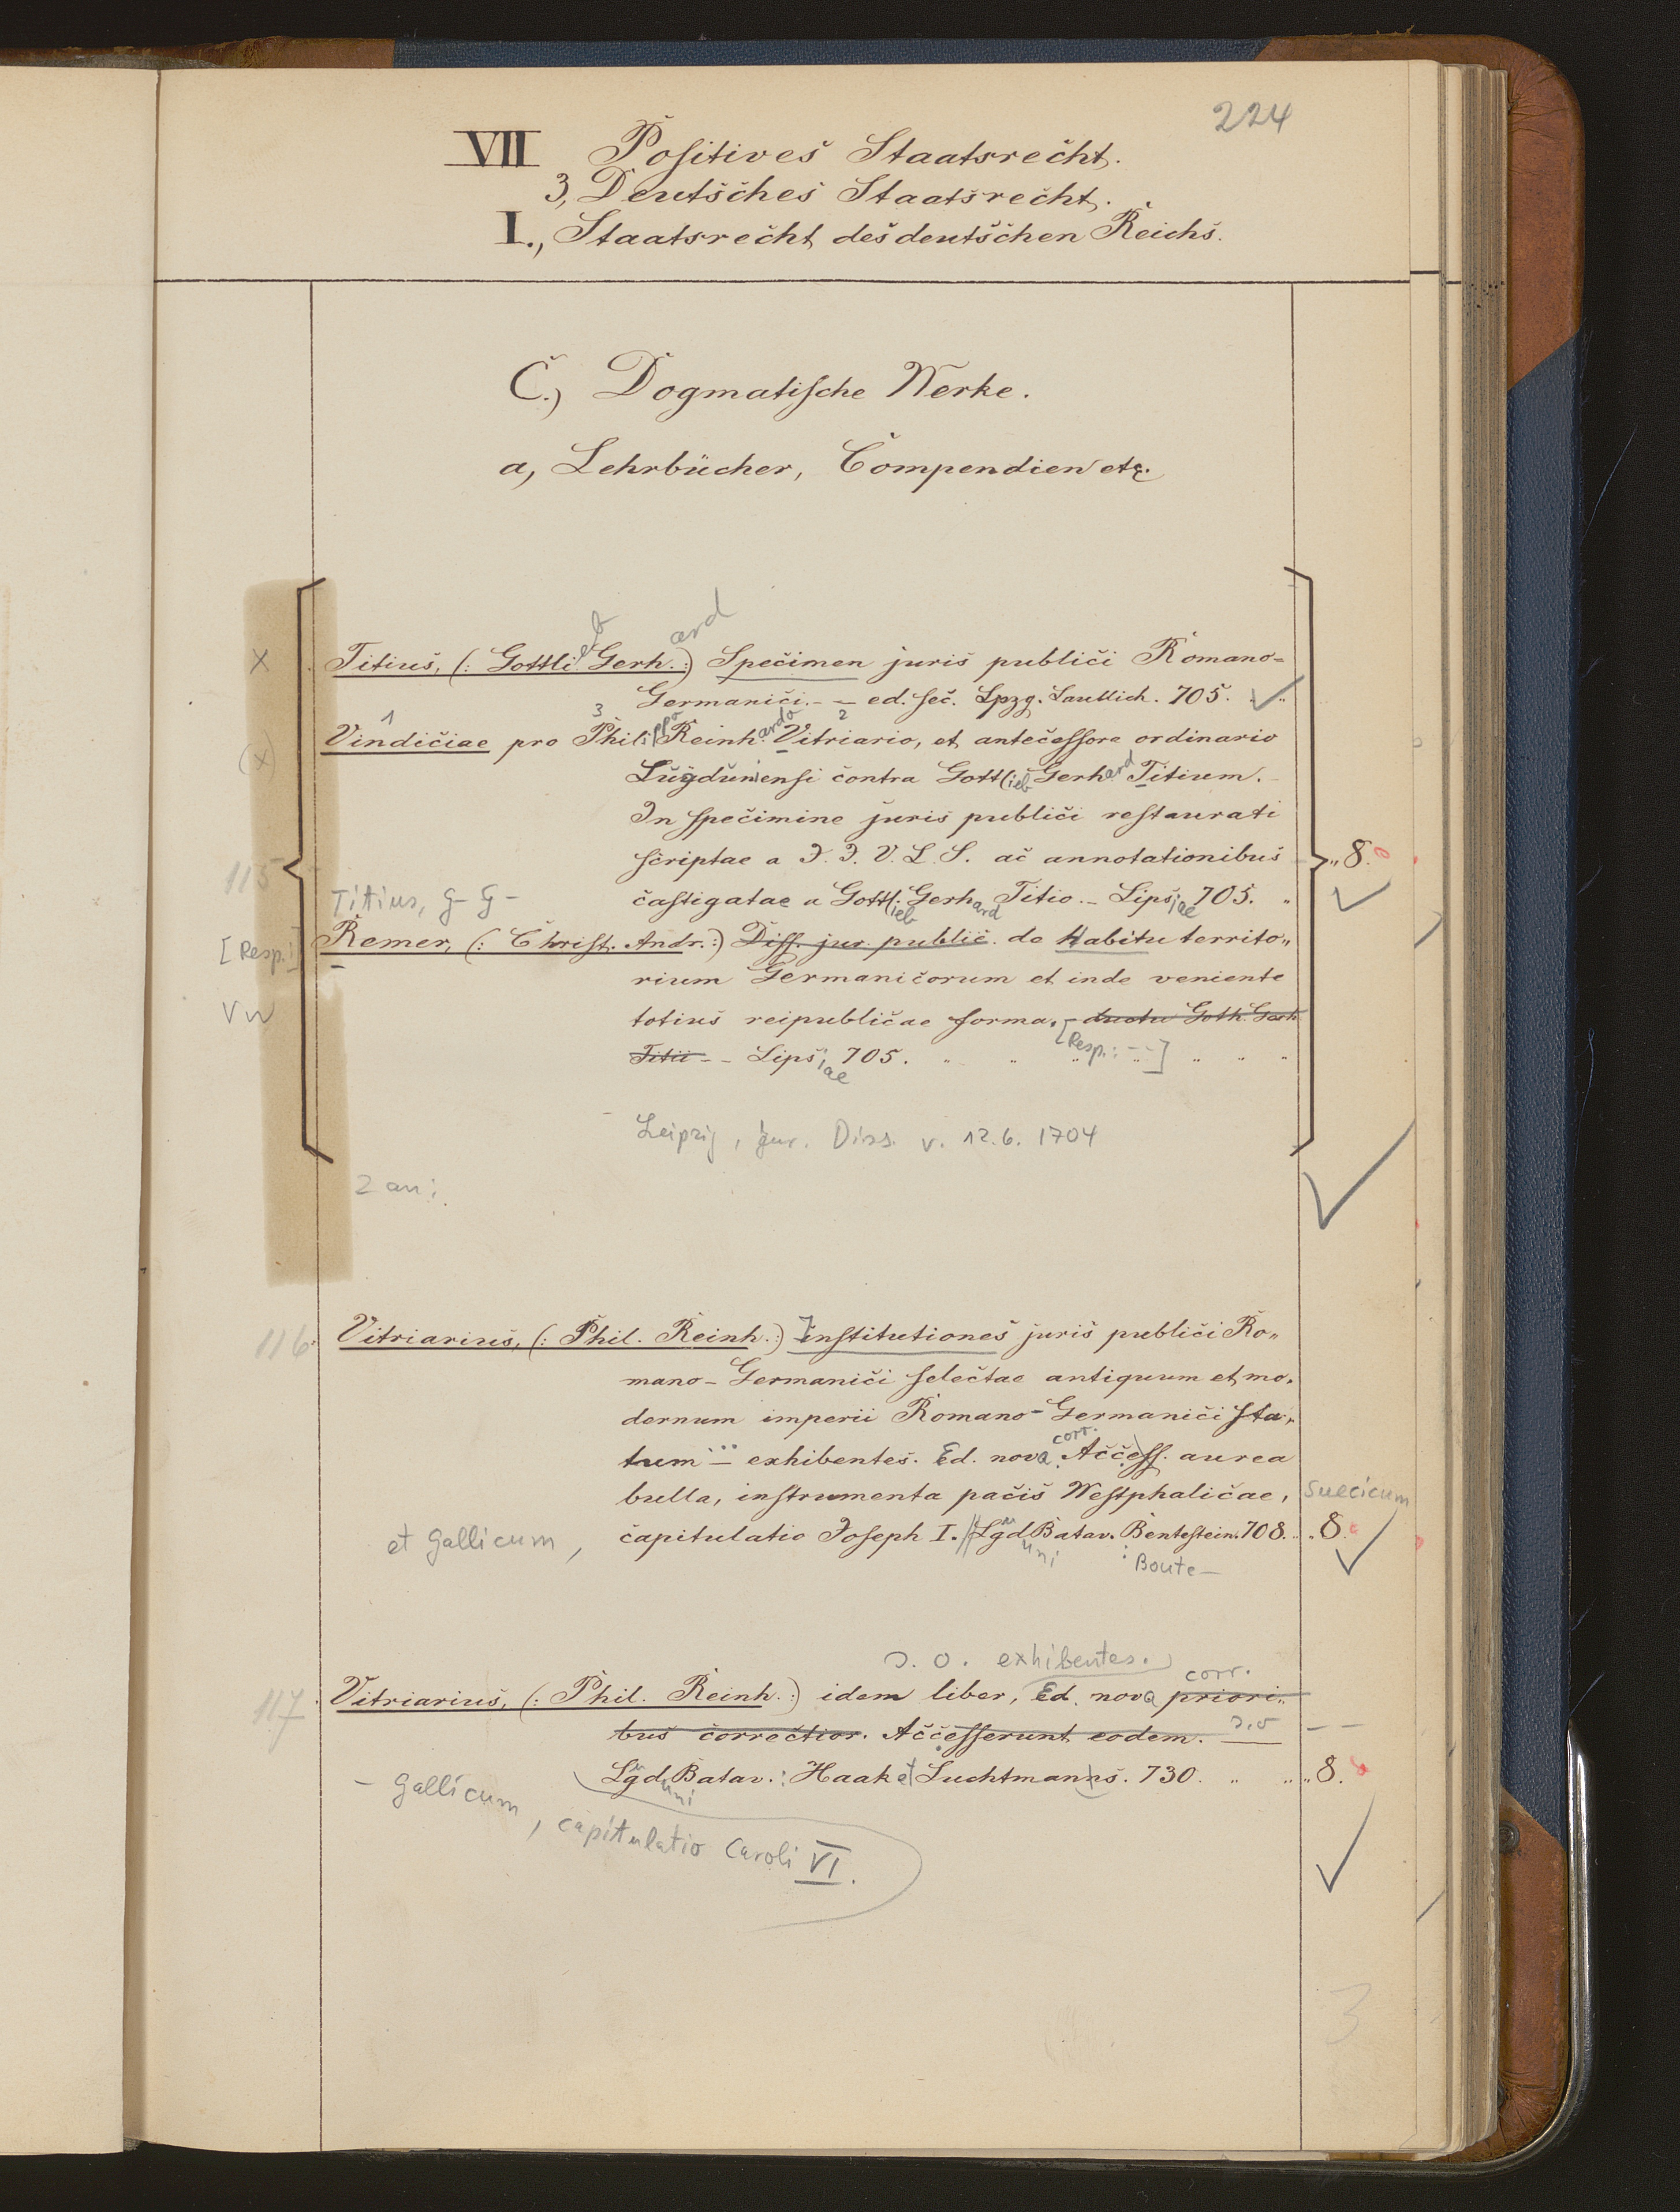 224
VII Positives Staatsrecht.
3, Deutsches Staatsrecht.
I., Staatsrecht des deutschen Reichs.
C.) Dogmatische Werke.
a, Lehrbücher, Compendien etc.
eb ard
x Titius, (: Gottli Gerh. :) Specimen juris publici Romano=
Germanici. - - ed. sec. Lpzg. Lanckisch. 705. "
1 3 ppo ardo 2
(x) Vindiciae pro Phili Reinh. Vitriario, et antecessore ordinario
Lugduniensi contra Gottlieb Gerhard Titium. -
In specimine juris publici restaurati
scriptae a J. J. V. L. S. ac annotationibus " 8.
115 castigatae a Gottl. Gerh Titio. - Lips. 705. "
Titius, G- G- ieb ard iae
[Resp.:] Remer, (: Christ. Andr. :) Diss. jur. public. de Habitu territo„
rium Germanicorum et inde veniente
Vw totius reipublicae forma. - ductu Goth. Gerh
Titii - - Lips. 705. " " [Resp.: --] " " "
iae
Leipzig, jur. Diss. v. 12.6. 1704
2 an:
116. Vitriarius, (: Phil. Reinh. :) Institutiones juris publici Ro„
mano-Germanici selectae antiquum et mo„
dernum imperii Romano-Germanici sta„
corr.
tum ... exhibentes. Ed. nova. Access. aurea
bulla, instrumenta pacis Westphalicae, suecicum
et Gallicum, capitulatio Joseph I. // Lgd Batav. Bentestein. 708. " " 8.
uni : Boute-
s. o. exhibentes. corr.
117. Vitriarius, (: Phil. Reinh. :) idem liber, Ed. nova priori„
bus correctior. Accesserunt eodem. s. o - -
Lgd Batav. : Haak et Luchtmanns. 730. " " " 8.
uni
- Gallicum, capitulatio Caroli VI.
3